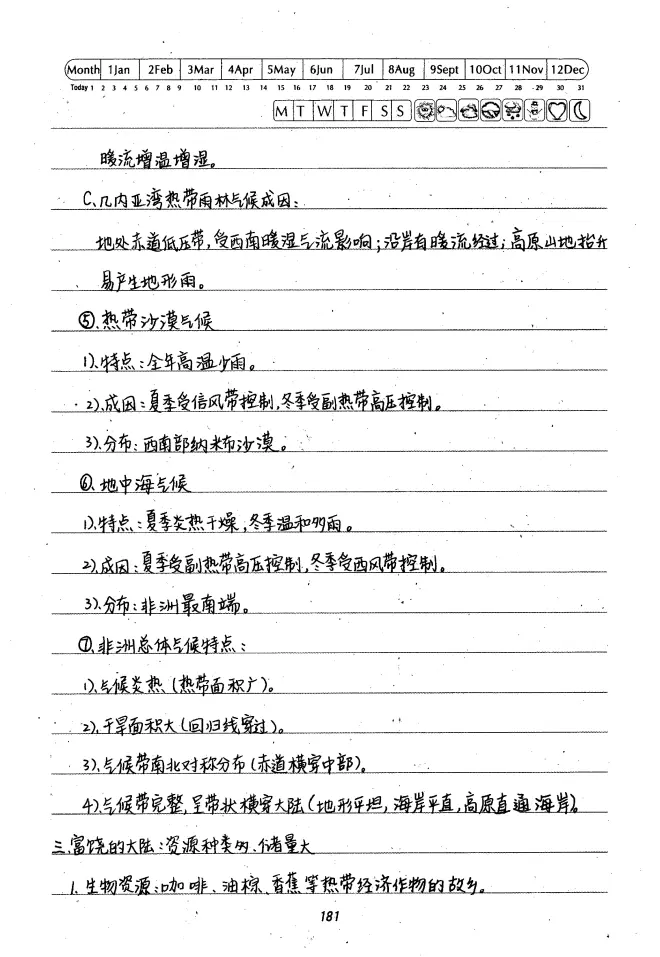 Month 1Jan 2Feb 3Mar 4Apr 5May 6Jun 7Jul 8Aug 9Sept 10Oct 11Nov 12Dec
Today 1 2 3 4 5 6 7 8 9 10 11 12 13 14 15 16 17 18 19 20 21 22 23 24 25 26 27 28 29 30 31
M T W T F S S
暖流增温增湿。
C、几内亚湾热带雨林气候成因:
地处赤道低压带,受西南暖湿气流影响;沿岸有暖流经过;高原山地抬升
易产生地形雨。
⑤、热带沙漠气候
1).特点:全年高温少雨。
2).成因:夏季受信风带控制,冬季受副热带高压控制。
3).分布:西南部纳米布沙漠。
⑥、地中海气候
1).特点:夏季炎热干燥,冬季温和多雨。
2).成因:夏季受副热带高压控制,冬季受西风带控制。
3).分布:非洲最南端。
⑦、非洲总体气候特点:
1).气候炎热(热带面积广)。
2).干旱面积大(回归线穿过)。
3).气候带南北对称分布(赤道横穿中部)。
4).气候带完整,呈带状横穿大陆(地形平坦,海岸平直,高原直通海岸)。
三、富饶的大陆:资源种类多、储量大
1.生物资源:咖啡、油棕、香蕉等热带经济作物的故乡。
181